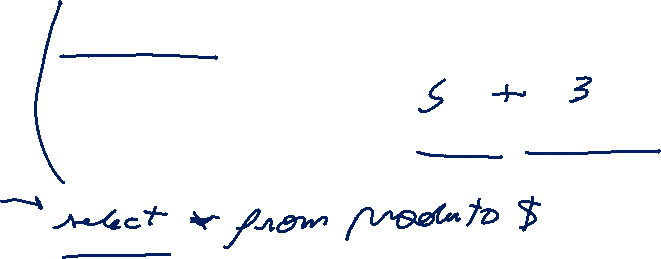 5 + 3
select * from produto $